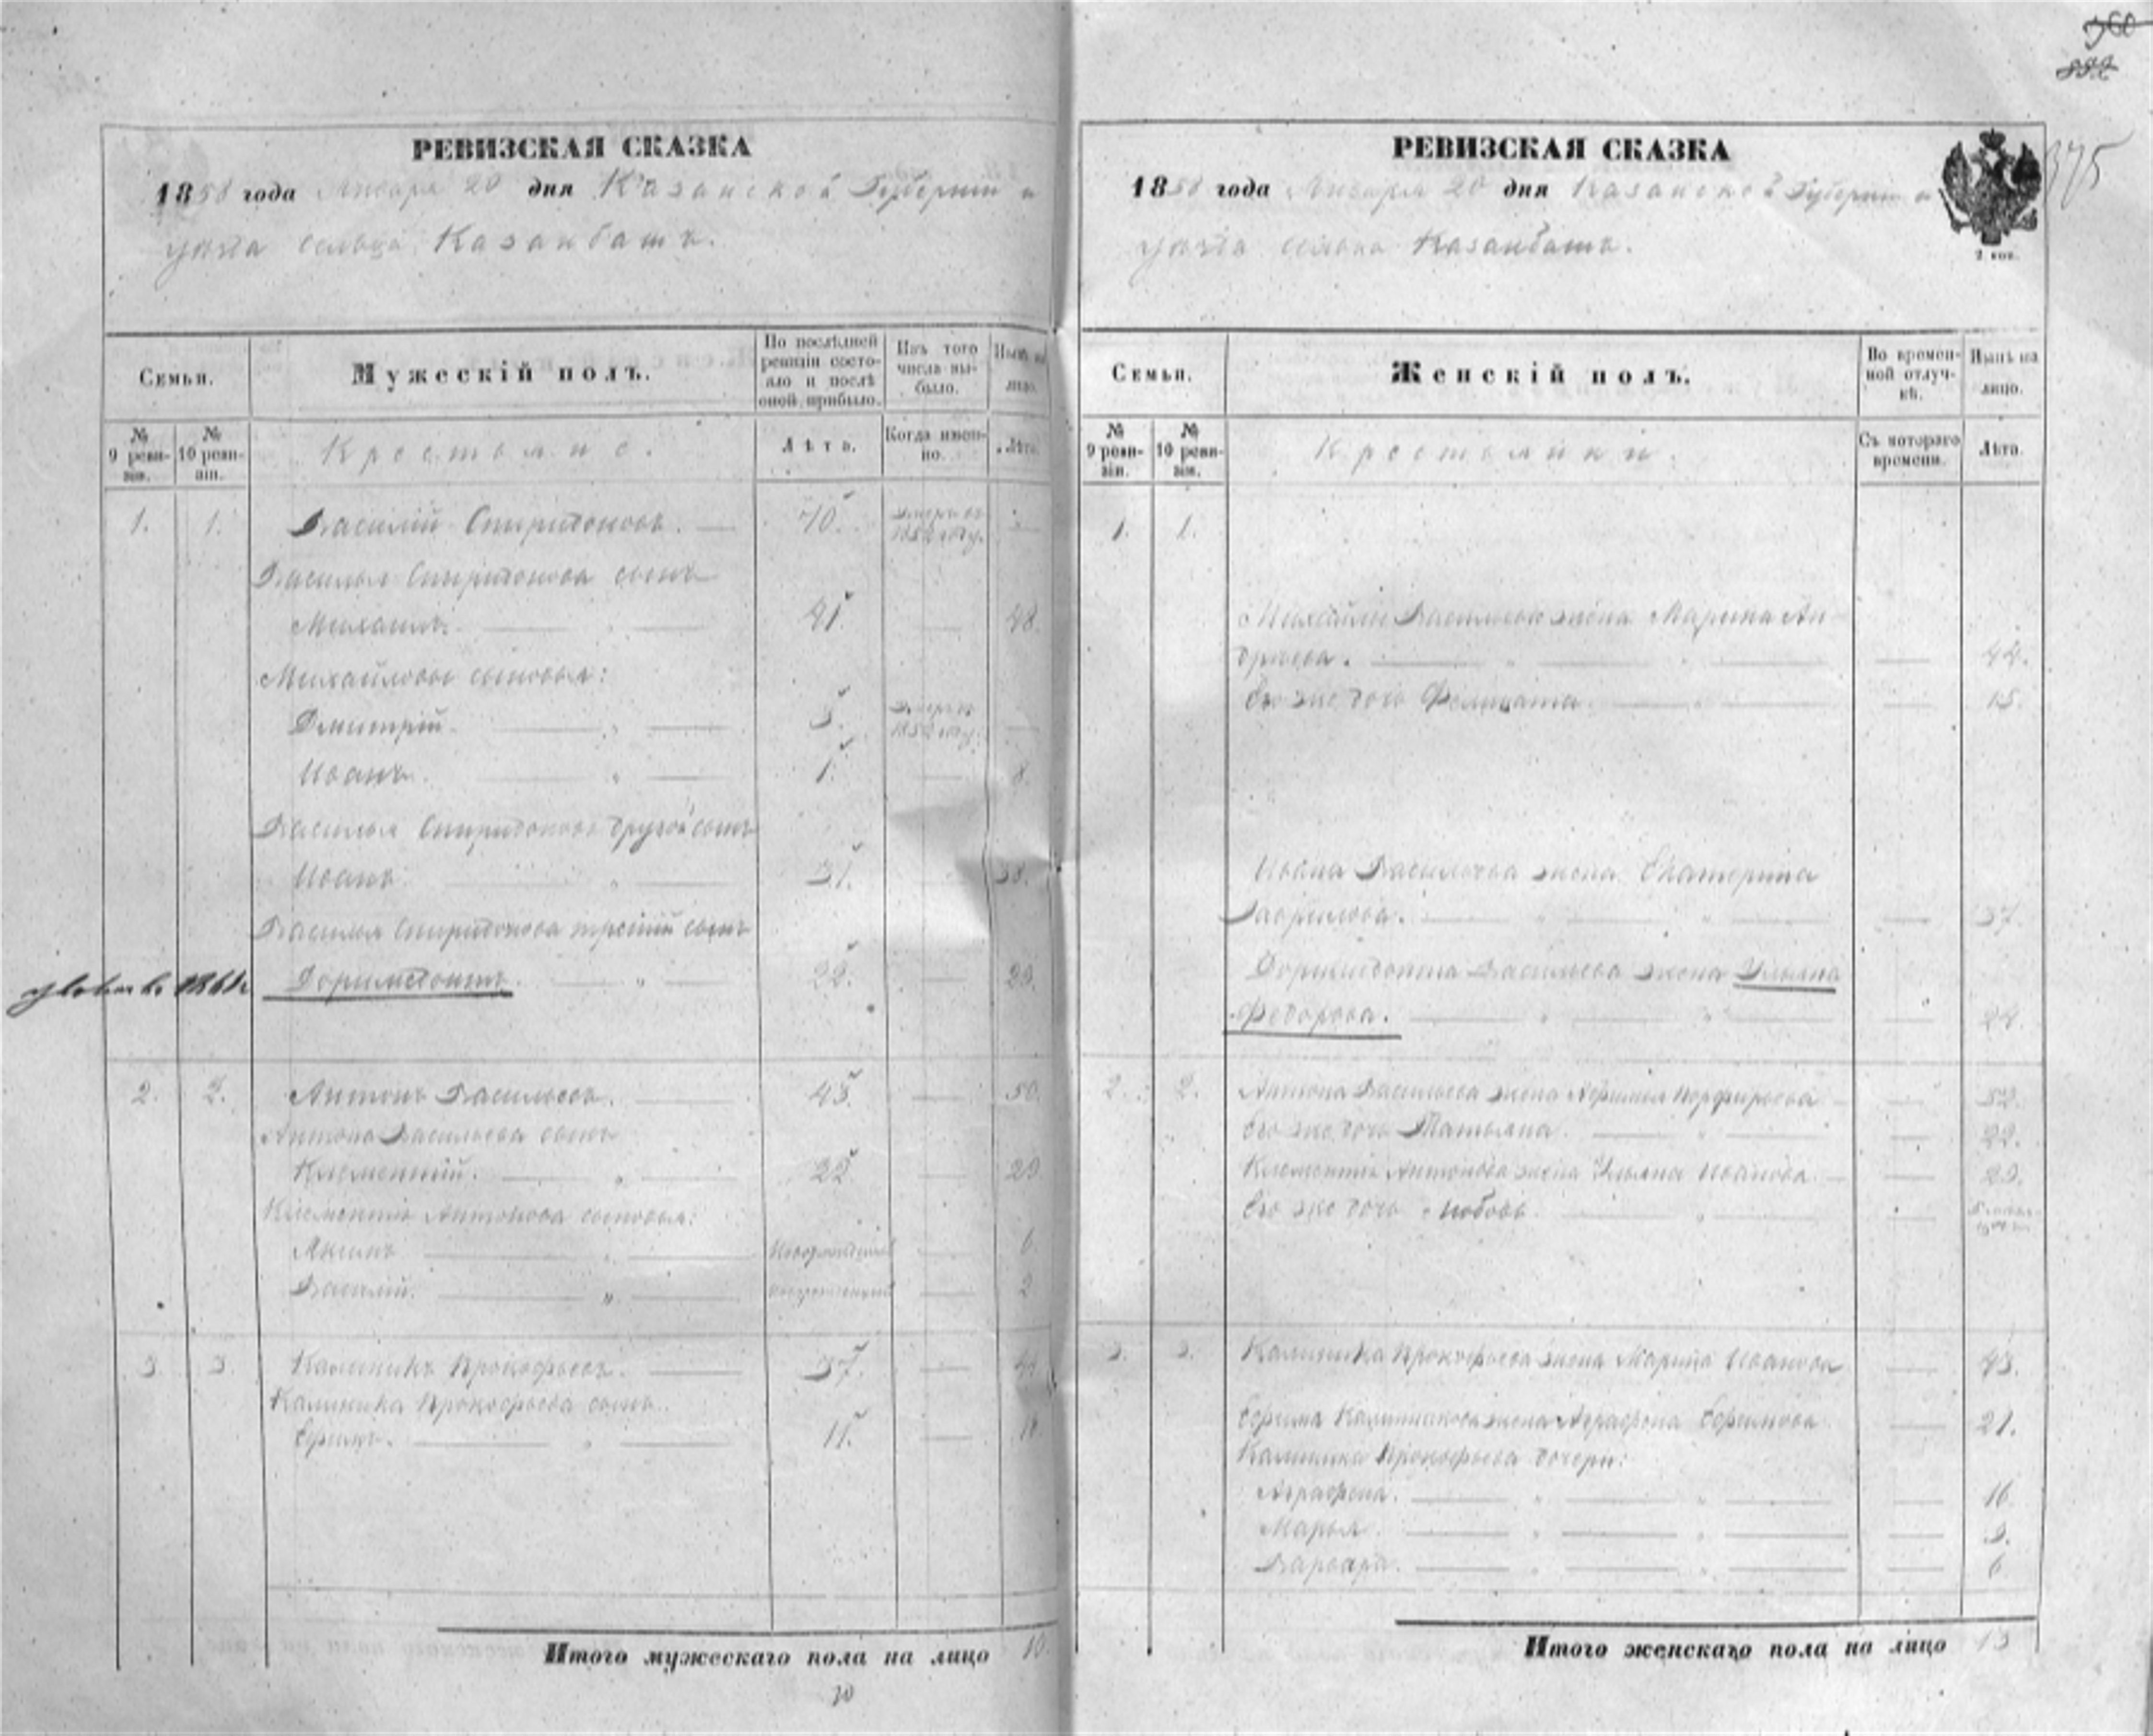 360
882
375
РЕВИЗСКАЯ СКАЗКА
1858 года Января 20 дня Казанской Губерніи и
уѣзда сельца Казанбашъ.
Семьи.
Мужескій полъ.
По послѣдней ревизіи состояло и послѣ оной прибыло.
Изъ того числа выбыло.
Нынѣ на лицо.
№ 9 ревизіи.
№ 10 ревизіи.
Крестьяне.
Лѣта.
Когда именно.
Лѣта.
1. 1. Василій Спиридоновъ. 70. умеръ въ 1852 году.
Василья Спиридонова сынъ
Михаилъ. 41. 48.
Михайловы сыновья:
Дмитрій. 3. умеръ въ 1852 году.
Иванъ. 1. 8.
Василья Спиридонова другой сынъ
Иванъ. 31. 38.
Василья Спиридонова третій сынъ
1861 Доримедонтъ. 22. 29.
2. 2. Антонъ Васильевъ. 43. 50.
Антона Васильева сынъ
Клементій. 22. 29.
Клементія Антонова сыновья:
Акимъ новорожденный 6
Василій. новорожденный 2
3. 3. Калиникъ Прокофьевъ. 37. 44.
Калиника Прокофьева сынъ
Ефимъ. 11. 18.
Итого мужескаго пола на лицо 10.
РЕВИЗСКАЯ СКАЗКА
1858 года Января 20 дня Казанской Губерніи и
уѣзда сельца Казанбашъ.
2 коп.
Семьи.
Женскій полъ.
Во временной отлучкѣ.
Нынѣ на лицо.
№ 9 ревизіи.
№ 10 ревизіи.
Крестьянки.
Съ котораго времени.
Лѣта.
1. 1.
Михайлы Васильева жена Марина Ан-
дреева. 44.
Его же дочь Фелицата. 15.
Ивана Васильева жена Екатерина
Гаврилова. 37.
Доримедонта Васильева жена Ульяна
Федорова. 24.
2. 2. Антона Васильева жена Афимья Порфирьева 52.
Его же дочь Татьяна. 22.
Клементія Антонова жена Ульяна Иванова. 29.
Его же дочь Любовь.
3. 3. Калиника Прокофьева жена Марина Иванова 43.
Ефима Калиникова жена Аграфена Ефимова 21.
Калиника Прокофьева дочери:
Аграфена. 16
Марья. 9.
Варвара. 6
Итого женскаго пола на лицо 13